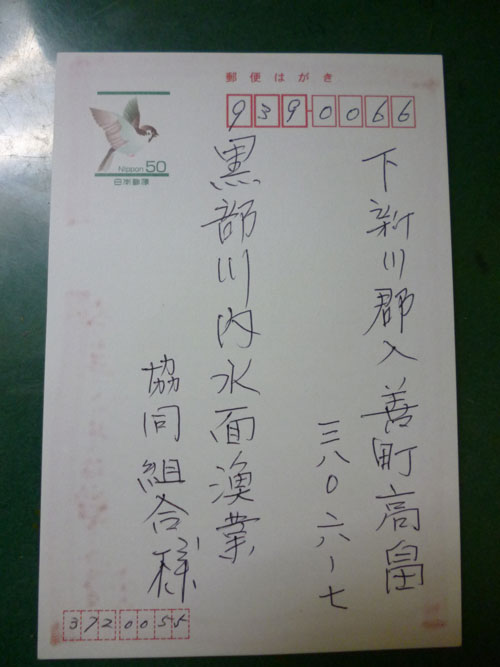 郵便はがき
939-0066
下新川郡入善町高畠
三八〇六ー七
黒部川内水面漁業
協同組合様
Nippon 50
日本郵便
372 0055